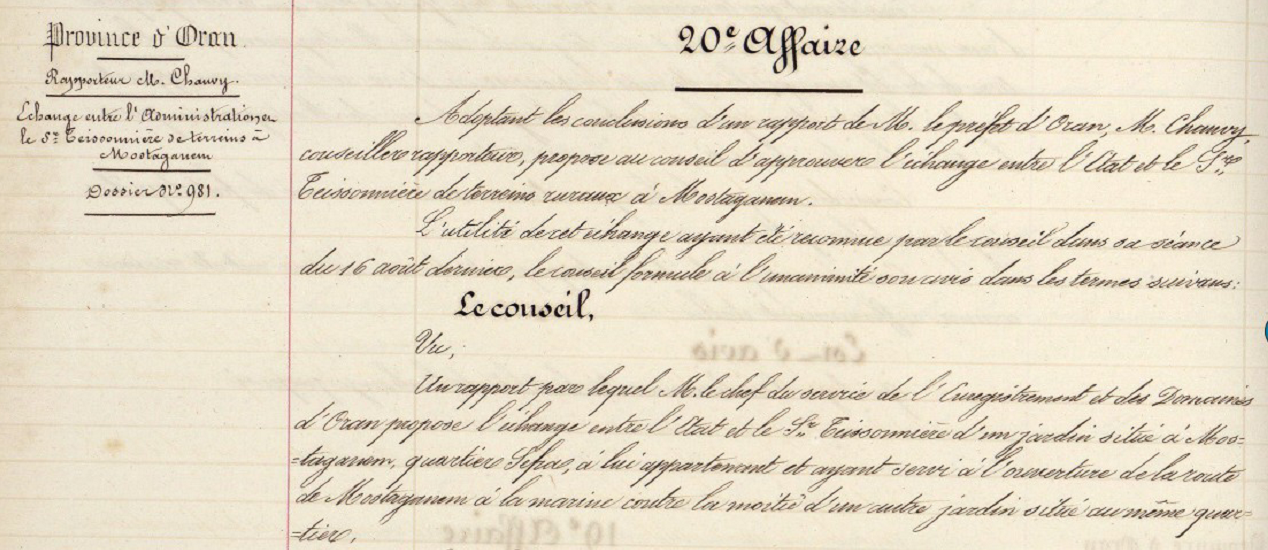 Province d'Oran.
Rapporteur M. Chauvy.
Echange entre l'Administration et
le Sr. Teissonnière de terrains à
Mostaganem
Dossier No. 981.
20e. Affaire
Adoptant les conclusions d'un rapport de M. le préfet d'Oran, M. Chauvy,
conseiller rapporteur, propose au conseil d'approuver l'échange entre l'Etat et le Sr.
Teissonnière de terreins ruraux à Mostaganem.
L'utilité de cet échange ayant été reconnue par le conseil dans sa séance
du 16 août dernier, le conseil formule à l'unanimité son avis dans les termes suivans:
Le conseil,
Vu;
Un rapport par lequel M. le chef du service de l'Enregistrement et des Domaines
d'Oran propose l'échange entre l'Etat et le Sr. Teissonnière d'un jardin situé à Mos=
=taganem, quartier, à lui appartenant et ayant servi à l'ouverture de la route
de Mostaganem à la marine contre la moitié d'un autre jardin situé au même quar=
=tier.
19e Affaire